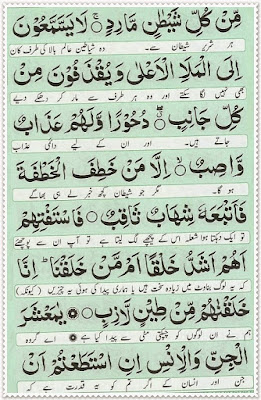 مِّنْ كُلِّ شَيْطٰنٍ مَّارِدٍ ۚ لَا يَسَّمَّعُوْنَ
ہر شریر شیطان سے۔ وہ شیاطین عالم بالا کی طرف کان
اِلَى الْمَلَاِ الْاَعْلٰى وَيُقْذَفُوْنَ مِنْ
بھی نہیں لگا سکتے اور وہ ہر طرف سے مار کر دھکے دیے
كُلِّ جَانِبٍ ۖ دُحُوْرًا وَّلَهُمْ عَذَابٌ
جاتے ہیں۔ اور ان کے لیے دائمی عذاب
وَّاصِبٌ ۙ اِلَّا مَنْ خَطِفَ الْخَطْفَةَ
ہو گا۔ مگر جو شیطان کچھ خبر لے ہی بھاگے
فَاَتْبَعَهٗ شِهَابٌ ثَاقِبٌ فَاسْتَفْتِهِمْ
تو ایک دہکتا ہوا شعلہ اس کے پیچھے لگ لیتا ہے تو آپ ان سے پوچھئے
اَهُمْ اَشَدُّ خَلْقًا اَمْ مَّنْ خَلَقْنَا ۚ اِنَّا
کہ یہ لوگ بناوٹ میں زیادہ سخت ہیں یا ہماری پیدا کی ہوئی یہ چیزیں (کیونکہ)
خَلَقْنٰهُمْ مِّنْ طِيْنٍ لَّازِبٍ يٰمَعْشَرَ
ہم نے ان لوگوں کو چپکتی مٹی سے پیدا کیا ہے۔ اے گروہ
الْجِنِّ وَالْاِنْسِ اِنِ اسْتَطَعْتُمْ اَنْ
جن اور انسان کے اگر تم کو یہ قدرت ہے کہ